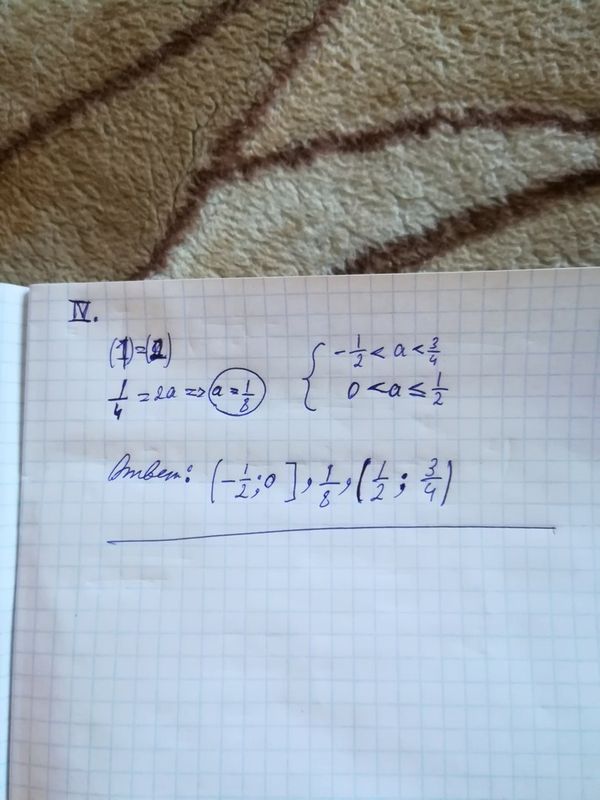 IV.
(1)=(2)
1/4 = 2a => a = 1/8
{ -1/2 < a < 3/4
0 < a ≤ 1/2
Ответ: (-1/2; 0], 1/8, (1/2; 3/4)